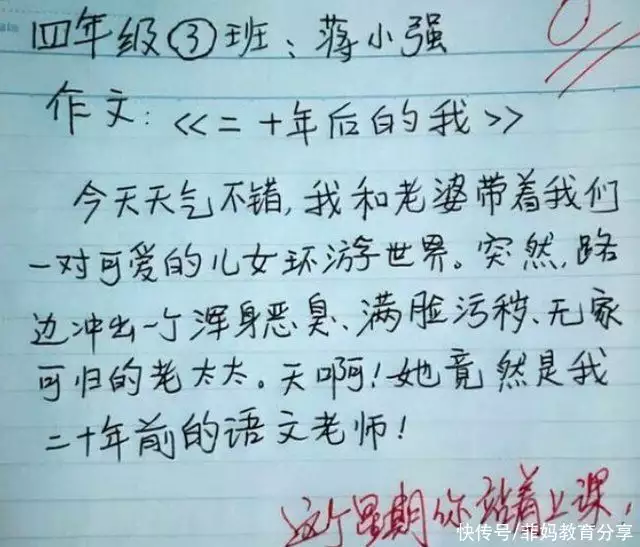 四年级③班：蒋小强
0
作文：《二十年后的我》
今天天气不错，我和老婆带着我们
一对可爱的儿女环游世界。突然，路
边冲出一个浑身恶臭、满脸污秽、无家
可归的老太太。天啊！她竟然是我
二十年前的语文老师！
这个星期你站着上课，
快传号/菲妈教育分享